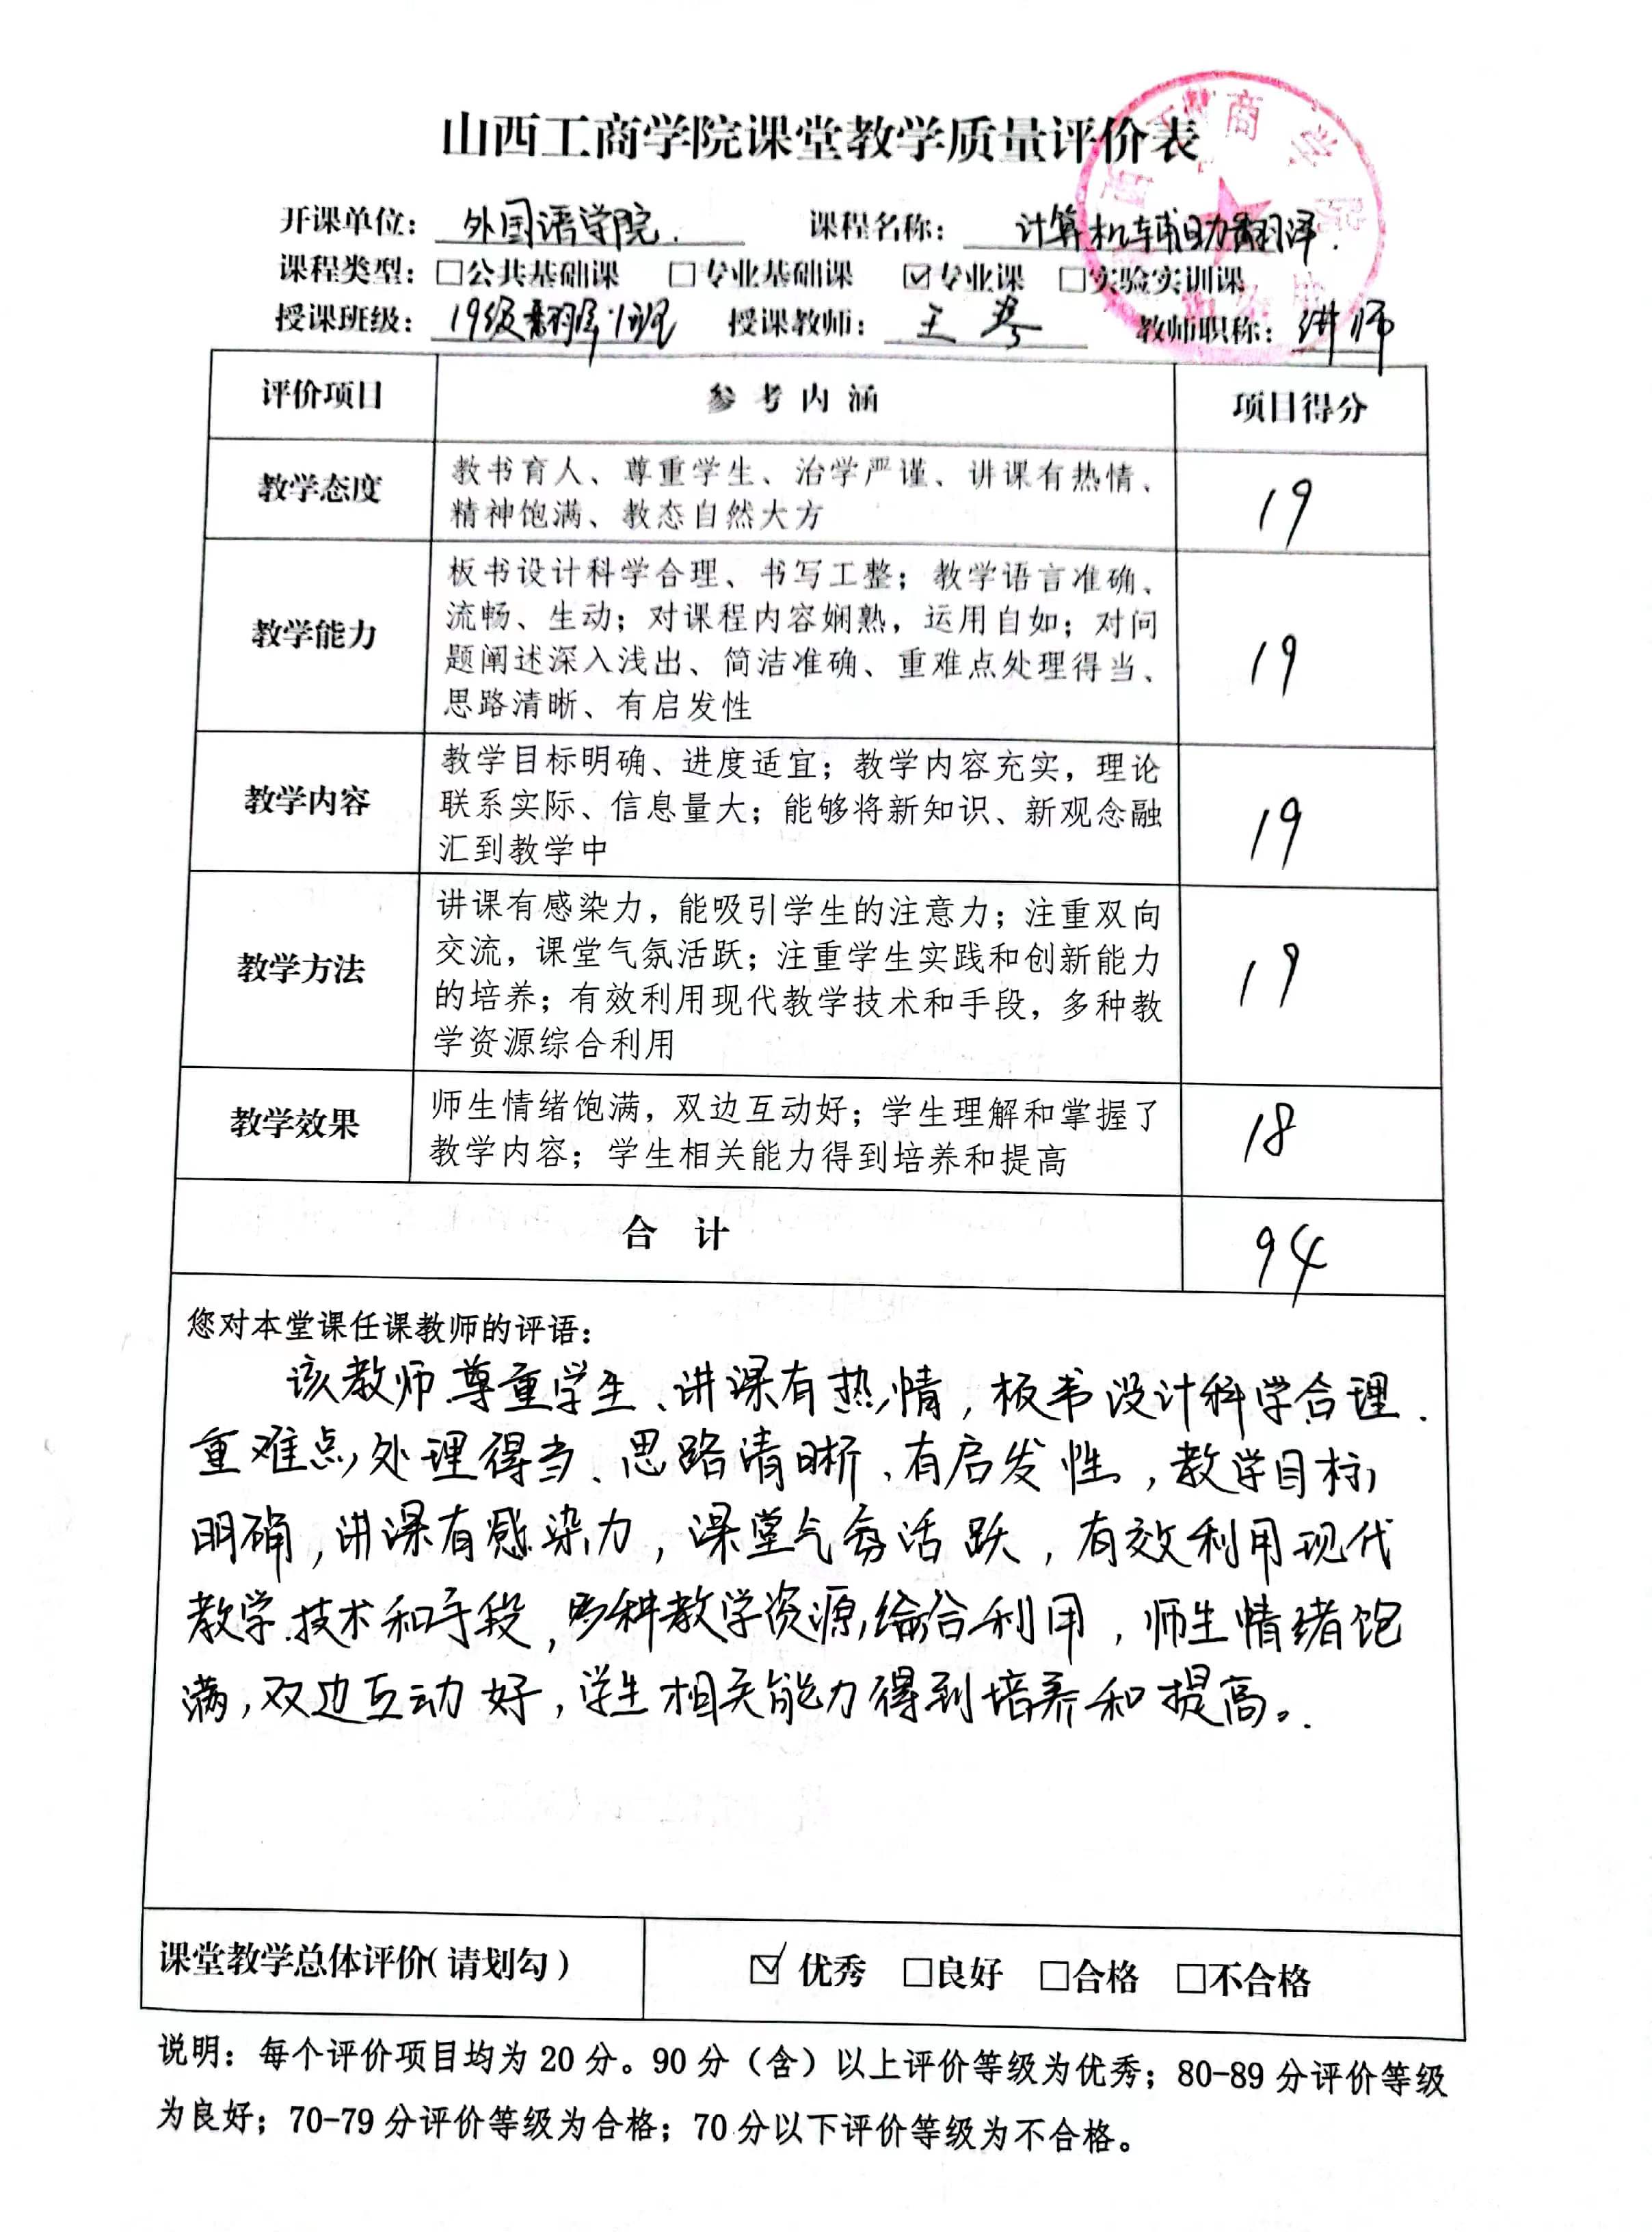 山西工商学院课堂教学质量评价表
开课单位：外国语学院. 课程名称：计算机辅助翻译.
课程类型：□公共基础课 □专业基础课 ☑专业课 □实验实训课
授课班级：19级翻译1班 授课教师：王 教师职称：讲师
评价项目 参考内涵 项目得分
教学态度
教书育人、尊重学生、治学严谨、讲课有热情、
精神饱满、教态自然大方
19
教学能力
板书设计科学合理、书写工整；教学语言准确、
流畅、生动；对课程内容娴熟，运用自如；对问
题阐述深入浅出、简洁准确、重难点处理得当、
思路清晰、有启发性
19
教学内容
教学目标明确、进度适宜；教学内容充实，理论
联系实际、信息量大；能够将新知识、新观念融
汇到教学中
19
教学方法
讲课有感染力，能吸引学生的注意力；注重双向
交流，课堂气氛活跃；注重学生实践和创新能力
的培养；有效利用现代教学技术和手段，多种教
学资源综合利用
19
教学效果
师生情绪饱满，双边互动好；学生理解和掌握了
教学内容；学生相关能力得到培养和提高
18
合 计 94
您对本堂课任课教师的评语：
该教师尊重学生、讲课有热情，板书设计科学合理.
重难点处理得当、思路清晰、有启发性，教学目标
明确，讲课有感染力，课堂气氛活跃，有效利用现代
教学技术和手段，多种教学资源综合利用，师生情绪饱
满，双边互动好，学生相关能力得到培养和提高。
课堂教学总体评价（请划勾） ☑优秀 □良好 □合格 □不合格
说明：每个评价项目均为 20 分。90 分（含）以上评价等级为优秀；80-89 分评价等级
为良好；70-79 分评价等级为合格；70 分以下评价等级为不合格。